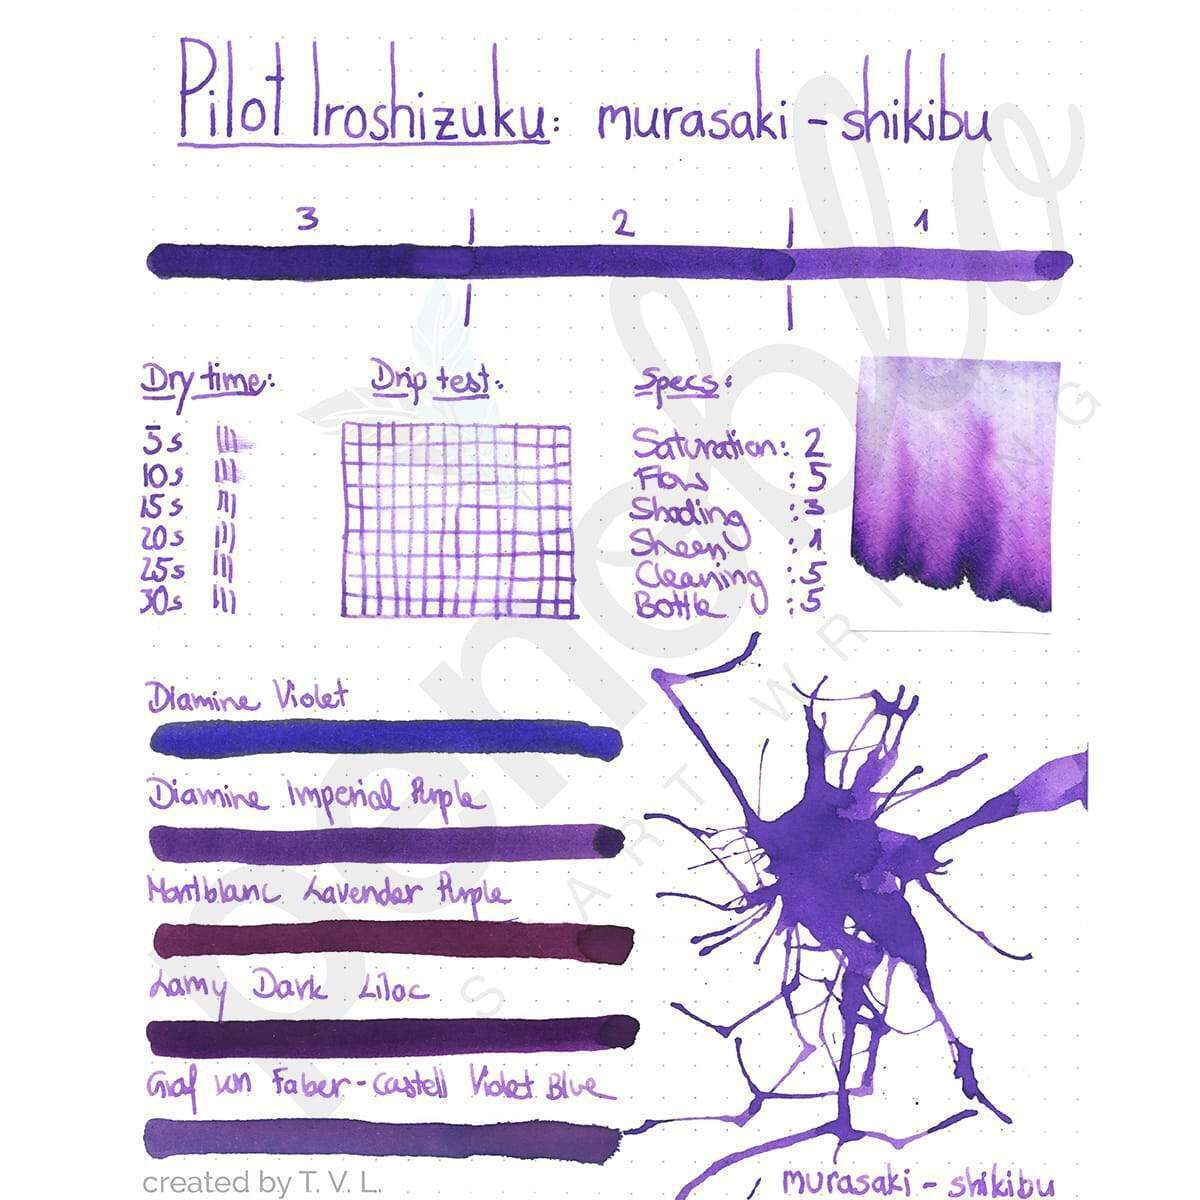 Pilot Iroshizuku: murasaki - shikibu
3 2 1
Dry time:
5s
10s
15s
20s
25s
30s
Drip test:
Specs:
Saturation: 2
Flow : 5
Shading : 3
Sheen : 1
Cleaning : 5
Bottle : 5
Diamine Violet
Diamine Imperial Purple
Montblanc Lavender Purple
Lamy Dark Lilac
Graf von Faber-Castell Violet Blue
murasaki - shikibu
created by T. V. L.
penoblo
ART WRITING